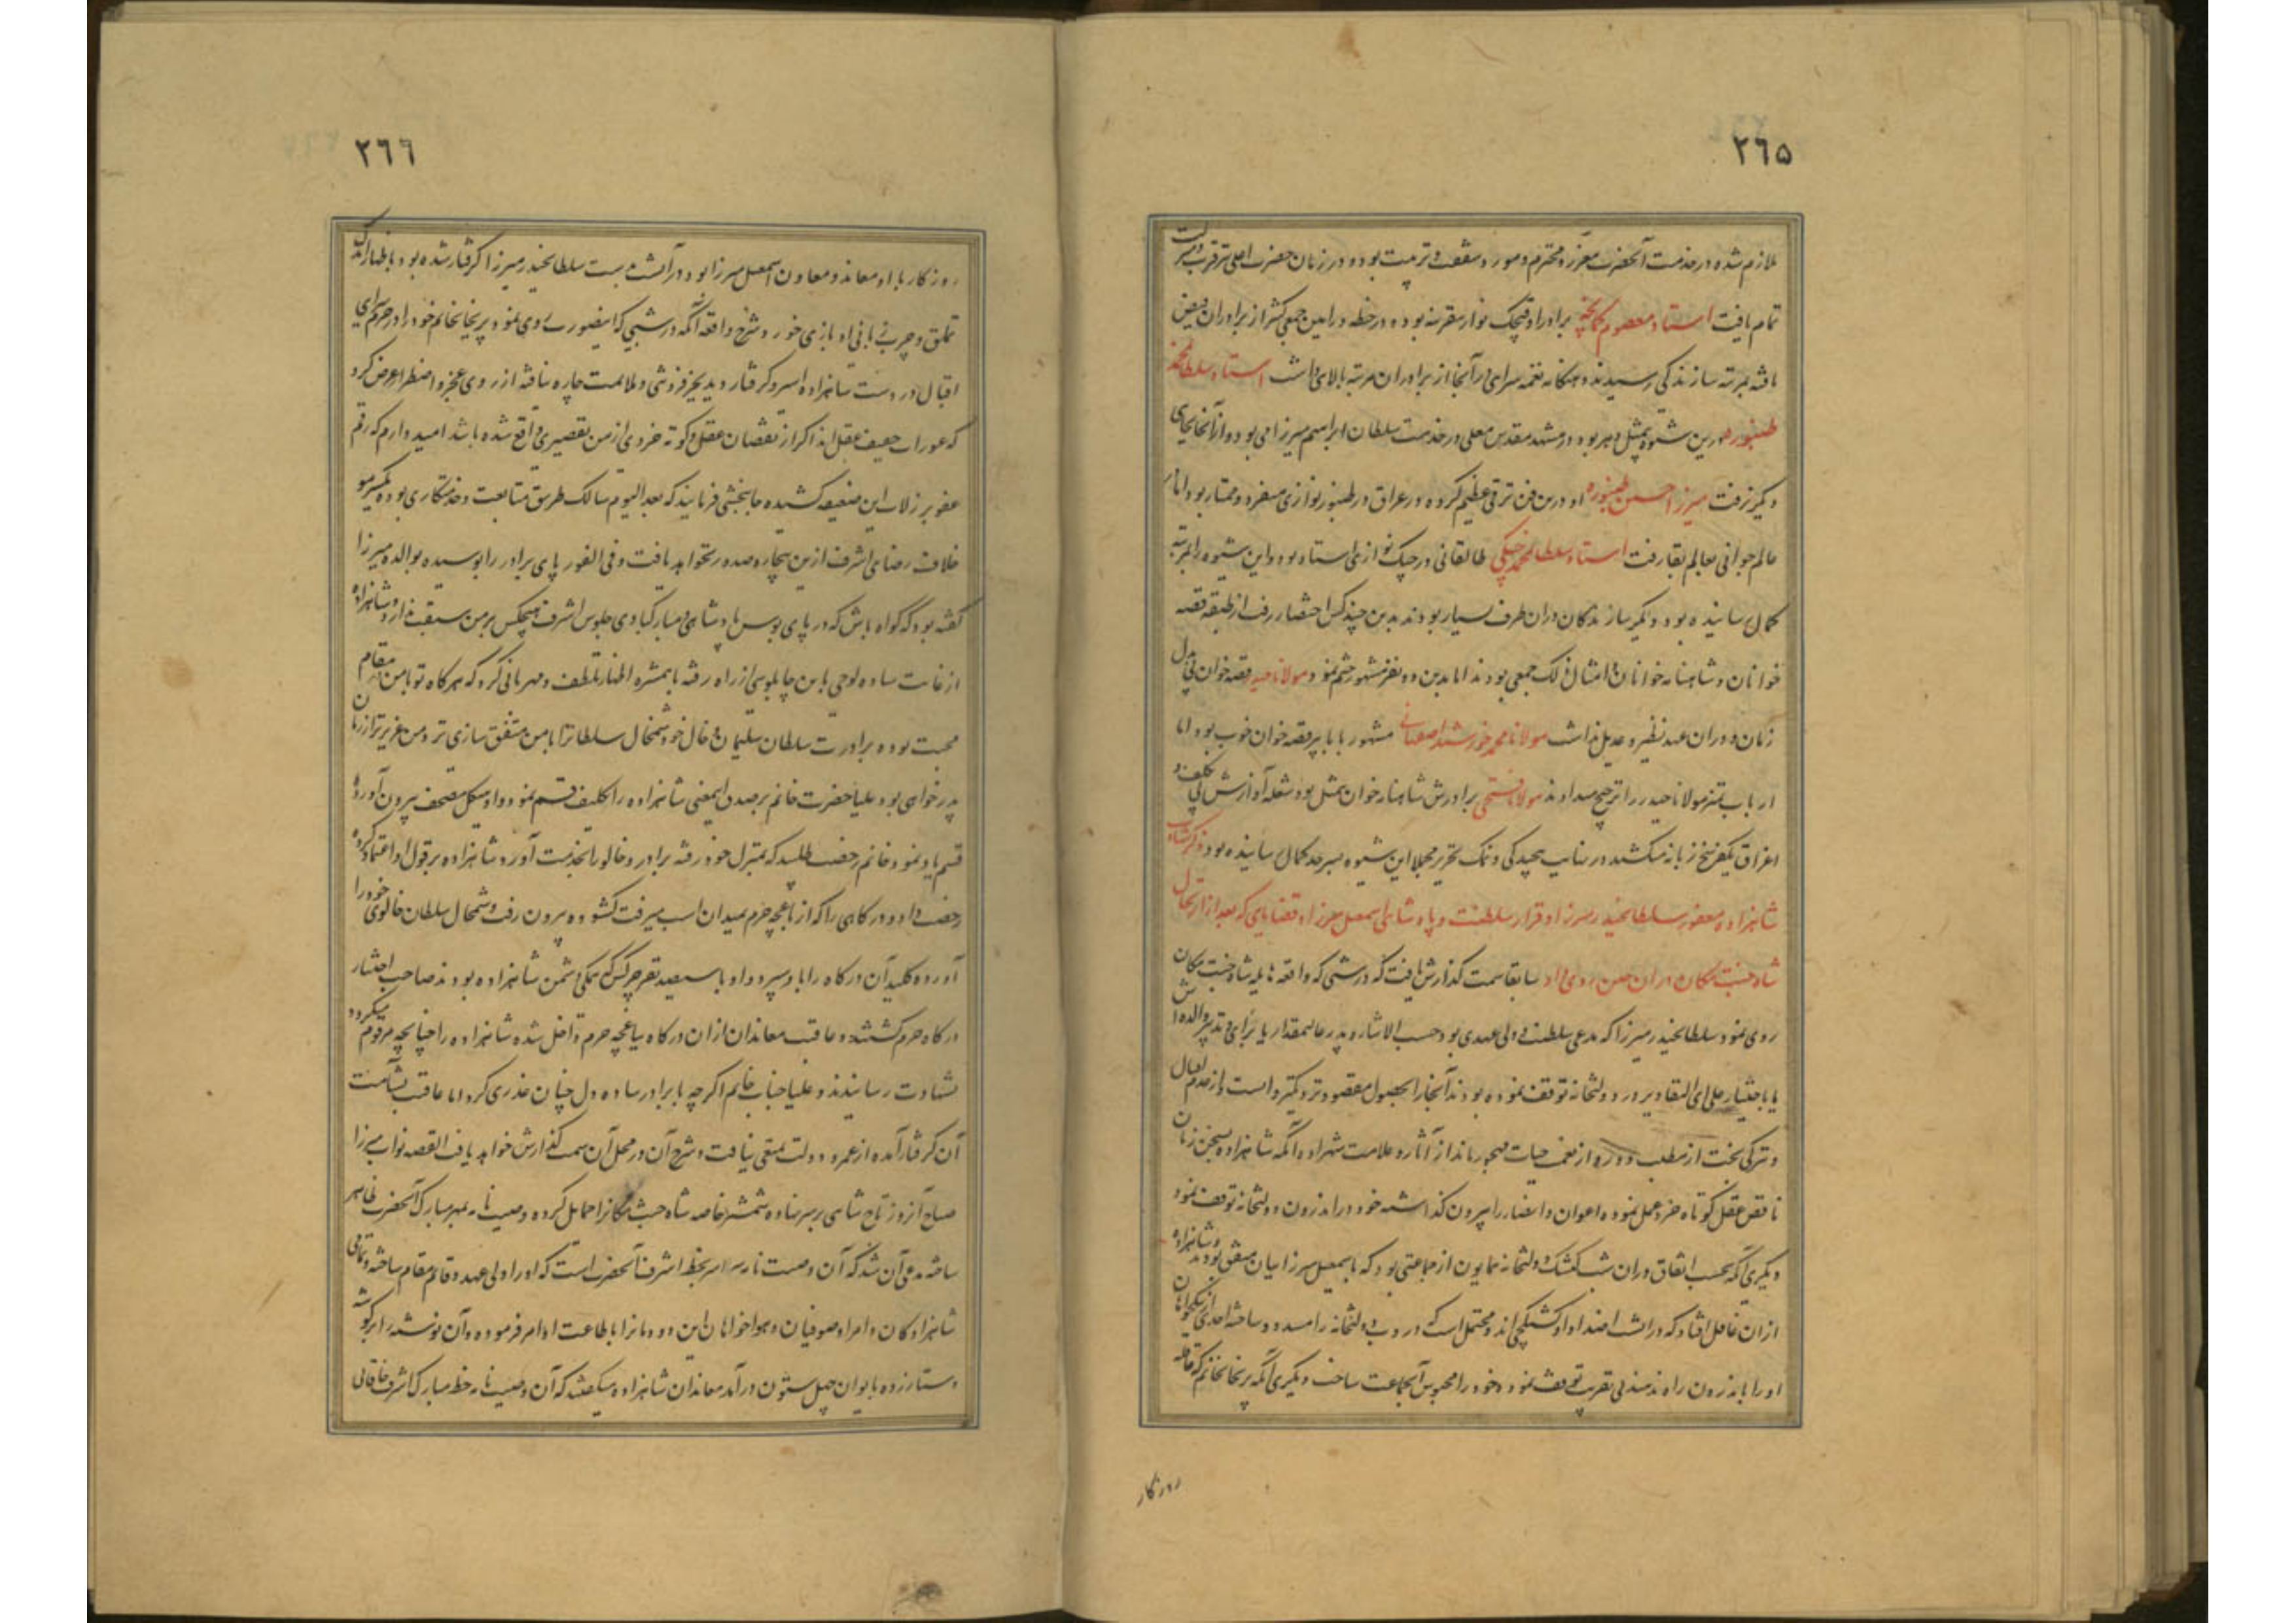 ٢٦٥
ملازم شده در خدمت آنحضرت معزز و محترم و مورد شفقت و تربیت بود و در زمان حضرت اعلی ترقی و تربیت
تمام یافت استاد معصوم کمانچه برادر او قیچک نواز مقررنه بوده در خطه و رامین جمعی کثیر از برادران فیض
یافته بمرتبه سازندگی رسیدند و هنگامه نغمه سرایی در آنجا از برادران مرتبه بالایی داشت استاد سلطانمحمد
طنبوره درین شیوه بیمثل دهر بود در مشهد مقدس معلی در خدمت سلطان ابراهیم میرزا می بود و از آنجا بجای
دیگر نرفت میرزا حسین طنبوره او درین فن ترقی عظیم کرده در عراق در طنبور نوازی منفرد و ممتاز بود اما در
عالم جوانی بعالم بقا رفت استاد سلطانمحمد چنگی طالقانی در چنگ نوازی استاد بود و این شیوه را بمرتبه
کمال رسانیده بود و دیگر سازندگان در ان طرف بسیار بودند بدین چند کس اختصار رفت از طبقه قصه
خوانان و شاهنامه خوانان و امثال ذلک جمعی بودند اما بدین دو نفر مشهور ختم نمود مولانا حیدر قصه خوان بی بدل
زمان و دوران عهد نظیر و عدیل نداشت مولانا محمد خورشید اصفهانی مشهور بابا بیر قصه خوان خوب بود اما
ارباب تمیز مولانا حیدر را ترجیح میدادند مولانا فتحی برادرش شاهنامه خوان بیمثل بود شعله آوازش بی تکلف و
اغراق یکفرسخ زبانه میکشید در نهایت پیچیدگی و نمک تحریر مجملا این شیوه بسرحد کمال رسانیده بود ذکر شهادت
شاهزاده مغفور سلطانحیدر میرزا و قرار سلطنت و پادشاهی اسمعیل میرزا و قضایای که بعد از ارتحال
شاه جنت مکان در ان حین روی داد سابقا سمت گذارش یافت که در شبی که واقعه هایله شاه جنت مکان
روی نمود سلطانحیدر میرزا که مدعی سلطنت و ولی عهدی بود حسب الاشاره پدر عالیمقدار یا برای و تدبیر والده اش
یا باختیار علی ای التقادیر در دولتخانه توقف نموده بودند آنجا را بحصول مقصود نزدیکتر دانست و از عدم اقبال
و ترکی بخت از مطلب دور و از نعمت حیات مهجور ماند از آثار و علامت شهزاده آنکه شاهزاده بسخن زنان
ناقص عقل کوتاه خرد عمل نموده اعوان و انصار را بیرون گذاشته خود در اندرون دولتخانه توقف نمود
دیگری آنکه بحسب اتفاق در ان شب کشیک دولتخانه همایون از جماعتی بود که با اسمعیل میرزاییان متفق بودند و شاهزاده
از ان غافل افتاد که در انشب اضداد او کشیکچی اند و محتمل است که دروب دولتخانه را مسدود ساخته احدی از نیکخواهان
او را باندرون راه ندهند بی تقریب توقف نمود و خود را محبوس آنجماعت ساخت دیگری آنکه پریخانخانم که قاعده
روزگار
٢٦٦
روزگار با او معاند و معاون اسمعیل میرزا بود و در آنشب بدست سلطانحیدر میرزا گرفتار شده بود باظهار اندک
تملق و چرب زبانی او بازی خورد شرح واقعه آنکه در شبی که اینصورت روی نمود پریخانخانم خود را در حرم سرای
اقبال در دست شاهزاده اسیر و گرفتار دید بجز فروتنی و ملایمت چاره نیافته از روی عجز و اضطرار عرض کرد
که عورات ضعیف عقل اند اگر از نقصان عقل و کوته خردی از من تقصیری واقع شده باشد امیدوارم که رقم
عفو بر زلات این ضعیفه کشیده جانبخشی فرمایند که بعد الیوم سالک طریق متابعت و خدمتکاری بوده یکسر مو
خلاف رضای اشرف ازین بیچاره صدور نخواهد یافت و فی الفور پای برادر را بوسیده بوالده میرزا
گفته بود که گواه باش که در پای بوس پادشاهی و مبارکبادی جلوس اشرف هیچکس بر من سبقت ندارد و شاهزاده
از غایت ساده لوحی باین چاپلوسی از راه رفته با همشیره اظهار تلطف و مهربانی کرد که هرگاه تو با من در مقام
محبت بوده برادرت سلطان سلیمان و خال خود شمخال سلطان را با من متفق سازی ترا من عزیزتر از زمان
پدر خواهی بود علیا حضرت خانم بر صدق اینمعنی شاهزاده را تکلیف قسم نمود و او هیکل مصحف بیرون آورده
قسم یاد نمود و خانم رخصت طلبید که بمنزل خود رفته برادر و خالو را بخدمت آورد شاهزاده بر قول او اعتماد کرده
رخصت داد و درگاهی را که از باغچه حرم بمیدان اسب میرفت گشوده بیرون رفت و شمخال سلطان خالوی خود را
آورده کلید آن درگاه را باو سپرد و او با سیصد نفر چرکس که همگی دشمن شاهزاده بودند صاحب اختیار
درگاه حرم گشتند و عاقبت معاندان از ان درگاه بباغچه حرم داخل شده شاهزاده را چنانچه مرقوم میگردد
بشهادت رسانیدند و علیا جناب خانم اگرچه با برادر ساده دل چنان غدری کرد اما عاقبت بشآمت
آن گرفتار آمده از عمر و دولت تمتعی نیافت و شرح آن در محل آن سمت گذارش خواهد یافت القصه نواب میرزا
صباح آنروز تاج شاهی بر سر نهاده شمشیر خاصه شاه جنت مکان را حمایل کرده و وصیت نامه بمهر مبارک آنحضرت ظاهر
ساخته مدعی آن شد که آن وصیت نامه سراسر بخط اشرف آنحضرت است که او را ولی عهد و قائم مقام ساخته و تمامی
شاهزادگان و امرا و صوفیان و هواخواهان این دودمان را باطاعت او امر فرموده و آن نوشته را بر گوشه
دستار زده بایوان چهل ستون در آمد معاندان شاهزاده میگفتند که آن وصیت نامه خط مبارک اشرف خاقانی